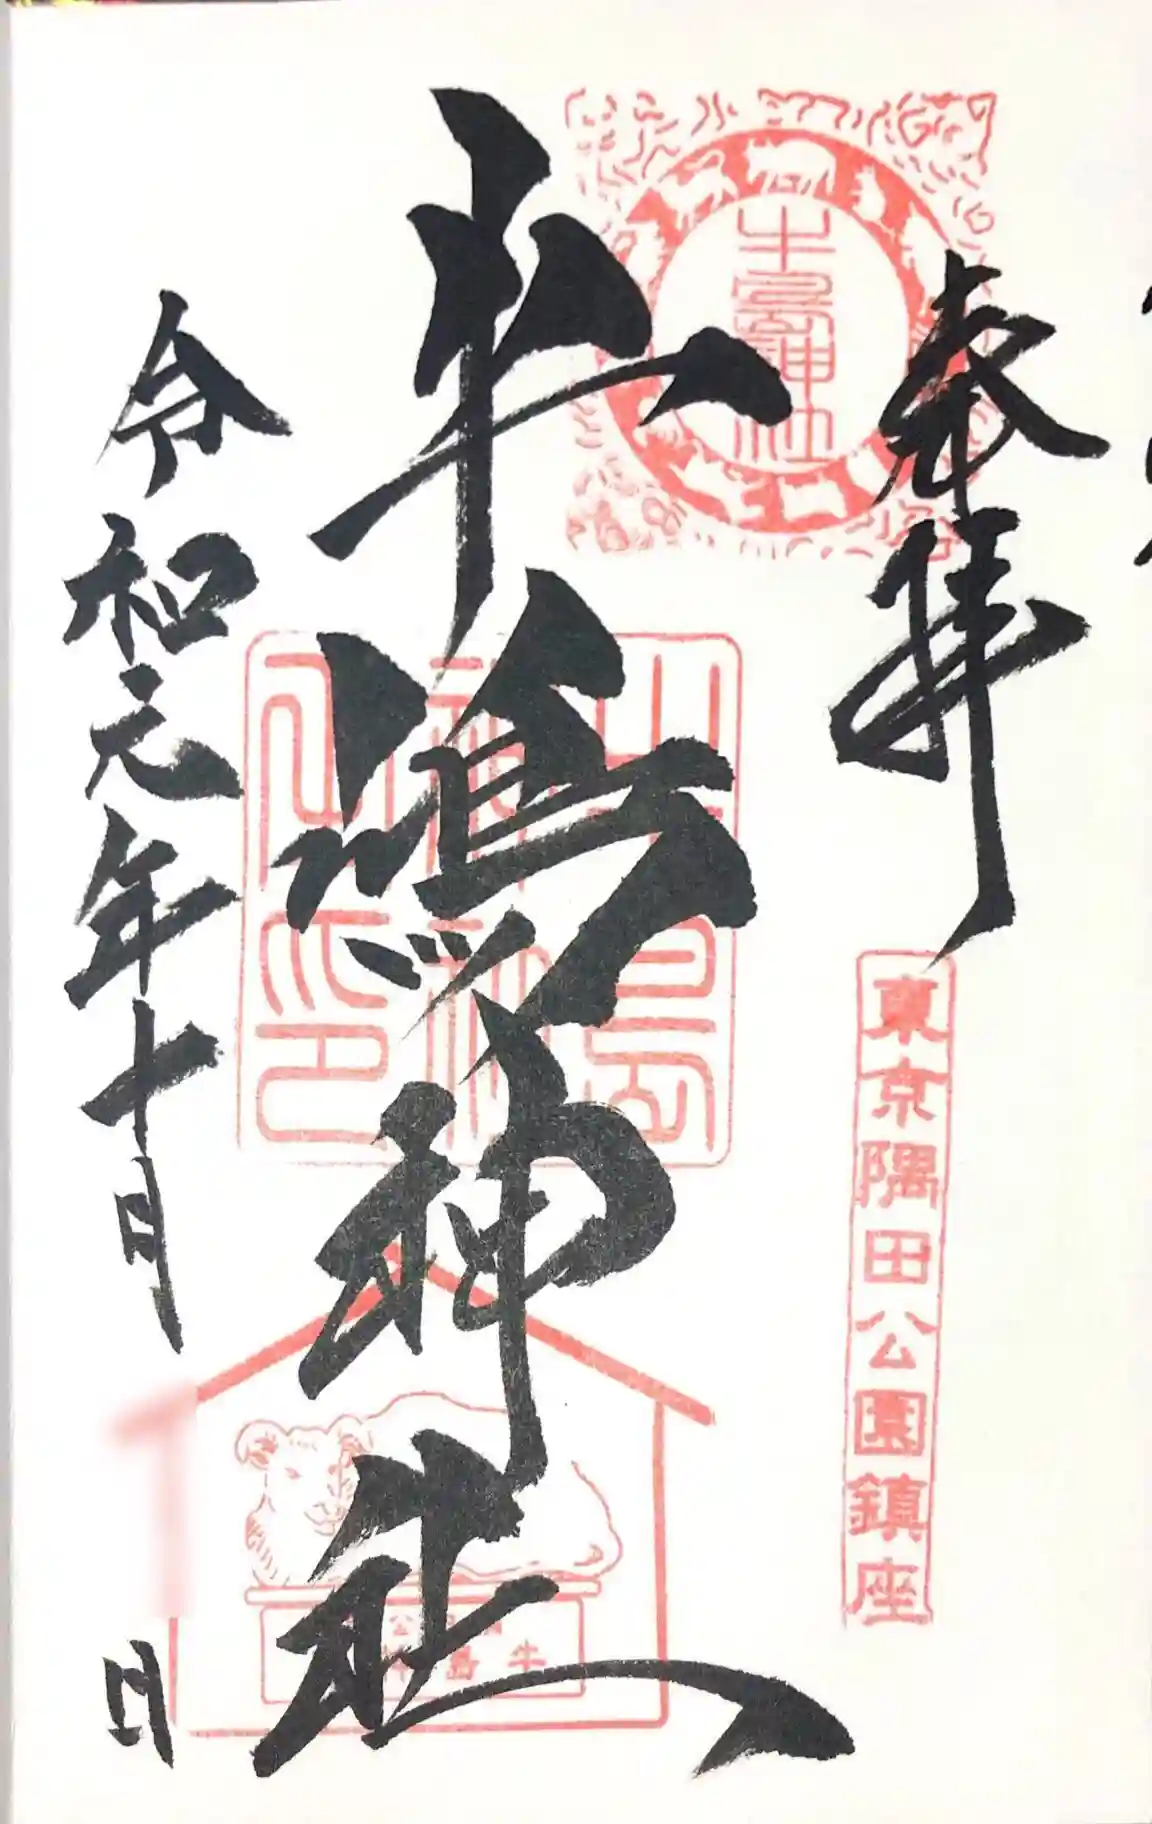 奉拝
東京隅田公園鎮座
牛嶋神社
牛島神社
牛島神社之印
令和元年十月
日